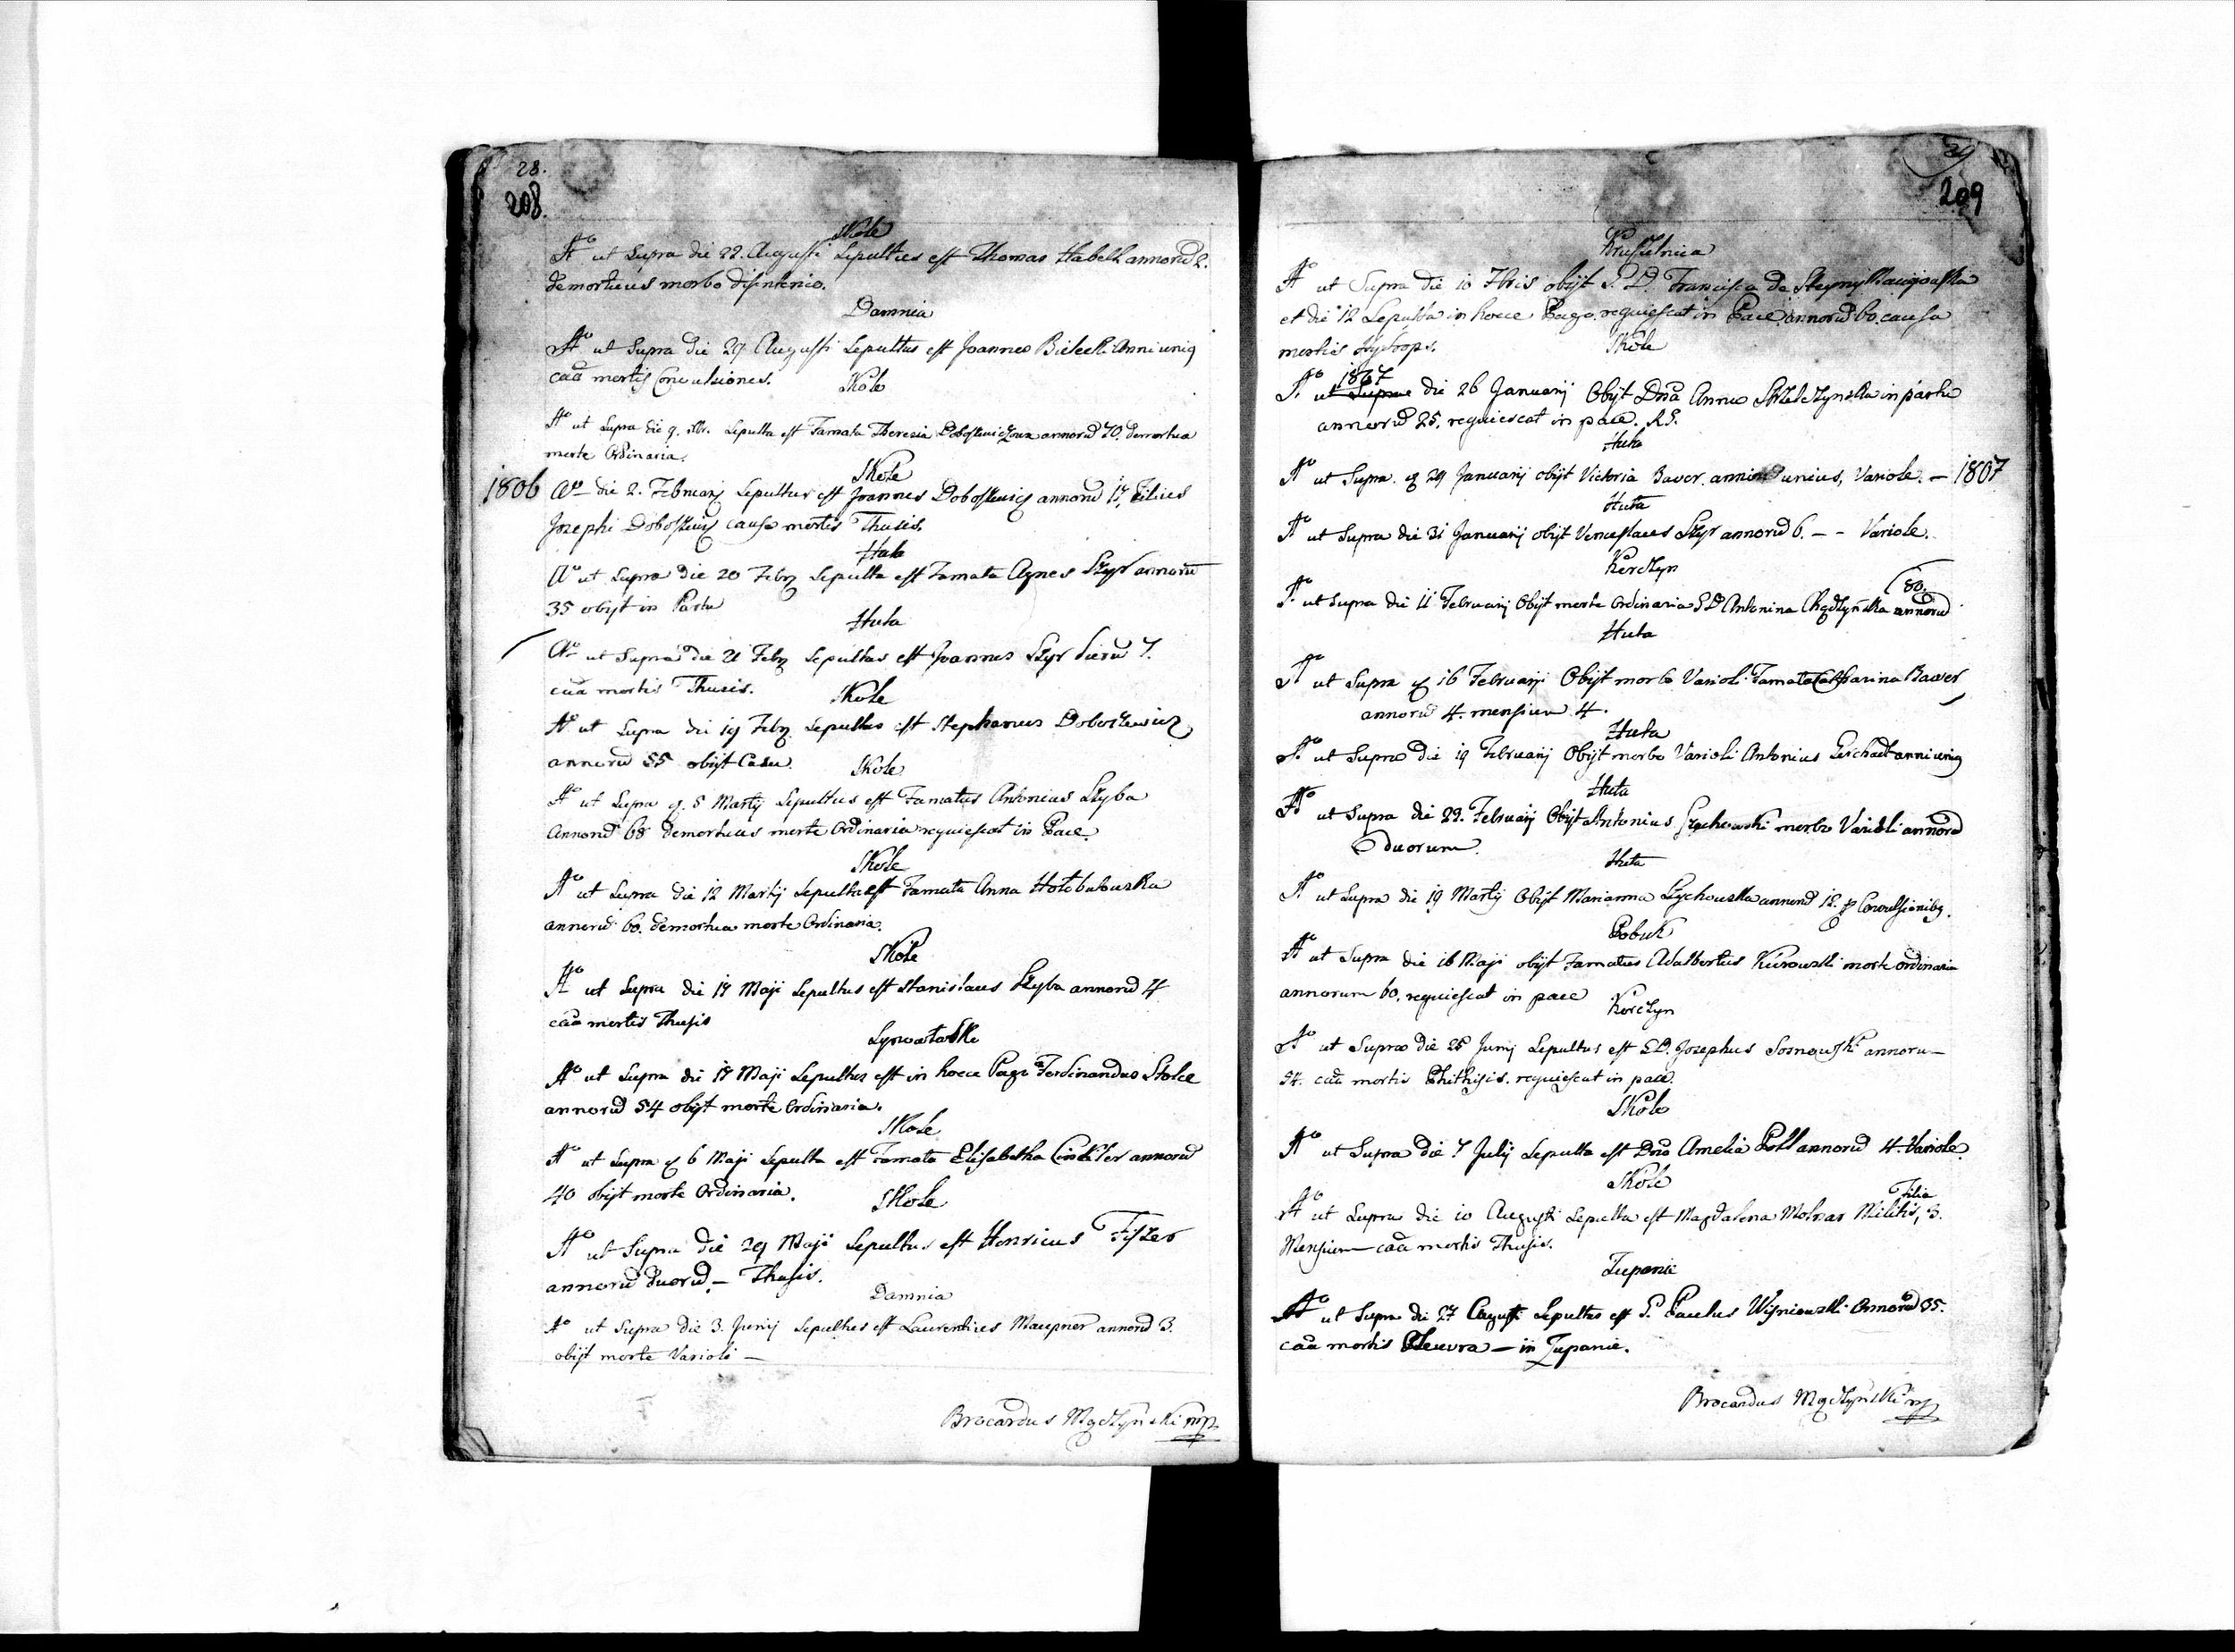 28.
208.
Skole
Aº ut Supra die 22. Augusti Sepultus est Thomas Habelk annorũ 2.
demortuus morbo disinterico.
Damnia
Aº ut Supra die 29 Augusti Sepultus est Joannes Bielecki Anni unig
caã mortis Convulsiones.
Skole
Aº ut Supra die 9. Sepulta est Famata Theresia annorũ 70. demortua
morte Ordinaria.
Skole
1806 Aº die 2. Februarij Sepultus est Joannes Doboszewicz annorũ 17, Filius
Josephi Doboszewicz causa mortis Thusis.
Huta
Aº ut Supra die 20 Febr Sepulta est Famata Agnes Szyr annorũ
35 obijt in Partu
Huta
Aº ut Supra die 21 Febr Sepultus est Joannes Szyr dierũ 7.
caã mortis Thusis.
Skole
Aº ut Supra die 19 Febr Sepultus est Stephanus Doboszewicz
annorũ 55 obijt Casu.
Skole
Aº ut Supra 5 Martij Sepultus est Famatus Antonius Szyba
Annorũ 68 demortuus morte Ordinaria requiescat in Pace.
Skole
Aº ut Supra die 12 Martij Sepulta est Famata Anna Hołobutowska
annorũ 60. demortua morte Ordinaria.
Skole
Aº ut Supra die 17 Maji Sepultus est Stanislaus Szyba annorũ 14
caã mortis Thusis
Synowutzke
Aº ut Supra die 18 Maji Sepultus est in hocce Pago Ferdinandus Stolce
annorũ 54 obijt morte Ordinaria.
Skole
Aº ut Supra 6 Maji Sepulta est Famata Elisabetha annorũ
40 obijt morte Ordinaria.
Skole
Aº ut Supra die 29 Maji Sepultus est Henricus Fiszer
annorũ duorũ. — Thusis.
Damnia
Aº ut Supra die 3. Junij Sepultus est Laurentius Maupner annorũ 3.
obijt morte Varioli —
Brocardus Mączyński mp
29
209
Kruszelnica
Aº ut Supra die 10 7bris obijt S. D. Francisca de
et die 12 Sepulta in hocce Pago requiescat in Pace annorũ 60. causa
mortis Hydrops.
Skole
1807
Aº ut Supra die 26 Januarij Obijt Dna Anna Strzelczynska in partu
annorũ 25. requiescat in pace.
Huta
Aº ut Supra 29 Januarij obijt Victoria Baver. anni unius, Variole. — 1807
Huta
Aº ut Supra die 31 Januarij obijt Venceslaus Szyr annorũ 6. — - Variole.
Korczyn
80.
Aº ut Supra die 11 Februarij Obijt morte Ordinaria S D Antonina annorũ
Huta
Aº ut Supra 16 Februarij Obijt morbo Varioli Famata Catharina Baver
annorũ 4. mensium 4.
Huta
Aº ut Supra die 19 Februarij Obijt morbo Varioli Antonius Gerchart anni unig
Huta
Aº ut Supra die 22. Februarij Obijt Antonius Szychowski morbo Varioli annorũ
duorum.
Huta
Aº ut Supra die 19 Martij Obijt Marianna Szychowska annorũ 12. Convulsionibg.
Pobuk
Aº ut Supra die 16 Maji obijt Famatus Adalbertus Kurowski morte ordinaria
annorum 60. requiescat in pace
Korczyn
Aº ut Supra die 25 Junij Sepultus est S.D. Josephus Sosnowski annoru—
54. caã mortis Phithisis. requiescat in pace.
Skole
Aº ut Supra die 7 Julij Sepulta est Dna Amelia Poll annorũ 4. Variole.
Skole
Filia
Aº ut Supra die 10 Augusti Sepulta est Magdalena Molnar Militis, 3.
Mensium — caã mortis Thusis.
Zupanie
Aº ut Supra die 27 Augusti Sepultus est P. Paulus Wisniowski Annorũ 35.
caã mortis Pleuvra — in Zupanie.
Brocardus Mączyński mp